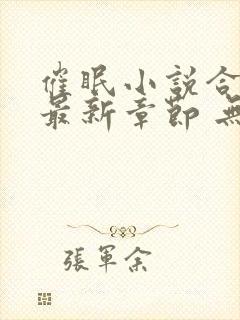 催眠小説合
最新章節 無
張軍余